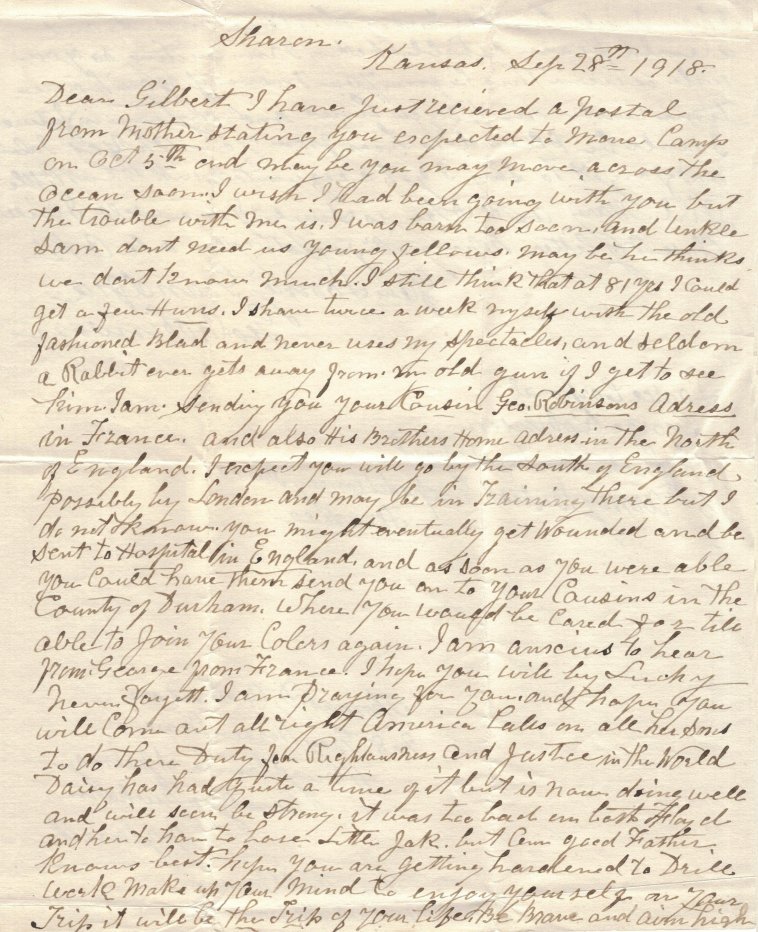 Sharon.
Kansas. Sep 28th 1918.
Dear Gilbert I have Just recieved a postal
from Mother stating you expected to Move Camp
on Oct 5th and may be you may move across the
Ocean soon. I wish I had been going with you but
the trouble with me is, I was barn too soon, and Unkle
Sam dont need us young fellows. may be he thinks
we dont know much. I still think that at 81 yrs I Could
get a few Huns. I shave twice a week myself with the old
fashioned Blad and never uses my spectacles, and seldom
a Rabbit ever gets away from m old gun if I get to see
him. I am sending you your Cousin Geo. Robinsons Adress
in France. and also His Brothers Home adress in the North
of England. I expect you will go by the South of England
possibly by London and may be in Training there but I
do not know. you might eventually get Wounded and be
sent to Hospital in England, and as soon as you were able
you Could have them send you on to your Cousins in the
County of Durham. Where you would be Cared for till
able to Join your Colors again. I am anxcius to hear
from George from France. I hope you will by Lucky
never forgett. I am Praying for you. and I hope you
will Come out all right America Calls on all her Sons
to do there Duty for Rightousness and Justice in the World
Daisy has had quite a time of it but is now doing well
and will soon be strong. it was too bad on both Floyd
and her to have to lose Little Jak. but Our good Father
knows best. hope you are getting hardened to Drill
work Make up your Mind to enjoy yourself on your
Trip it will be the Trip of your life. Be Brave and aim high